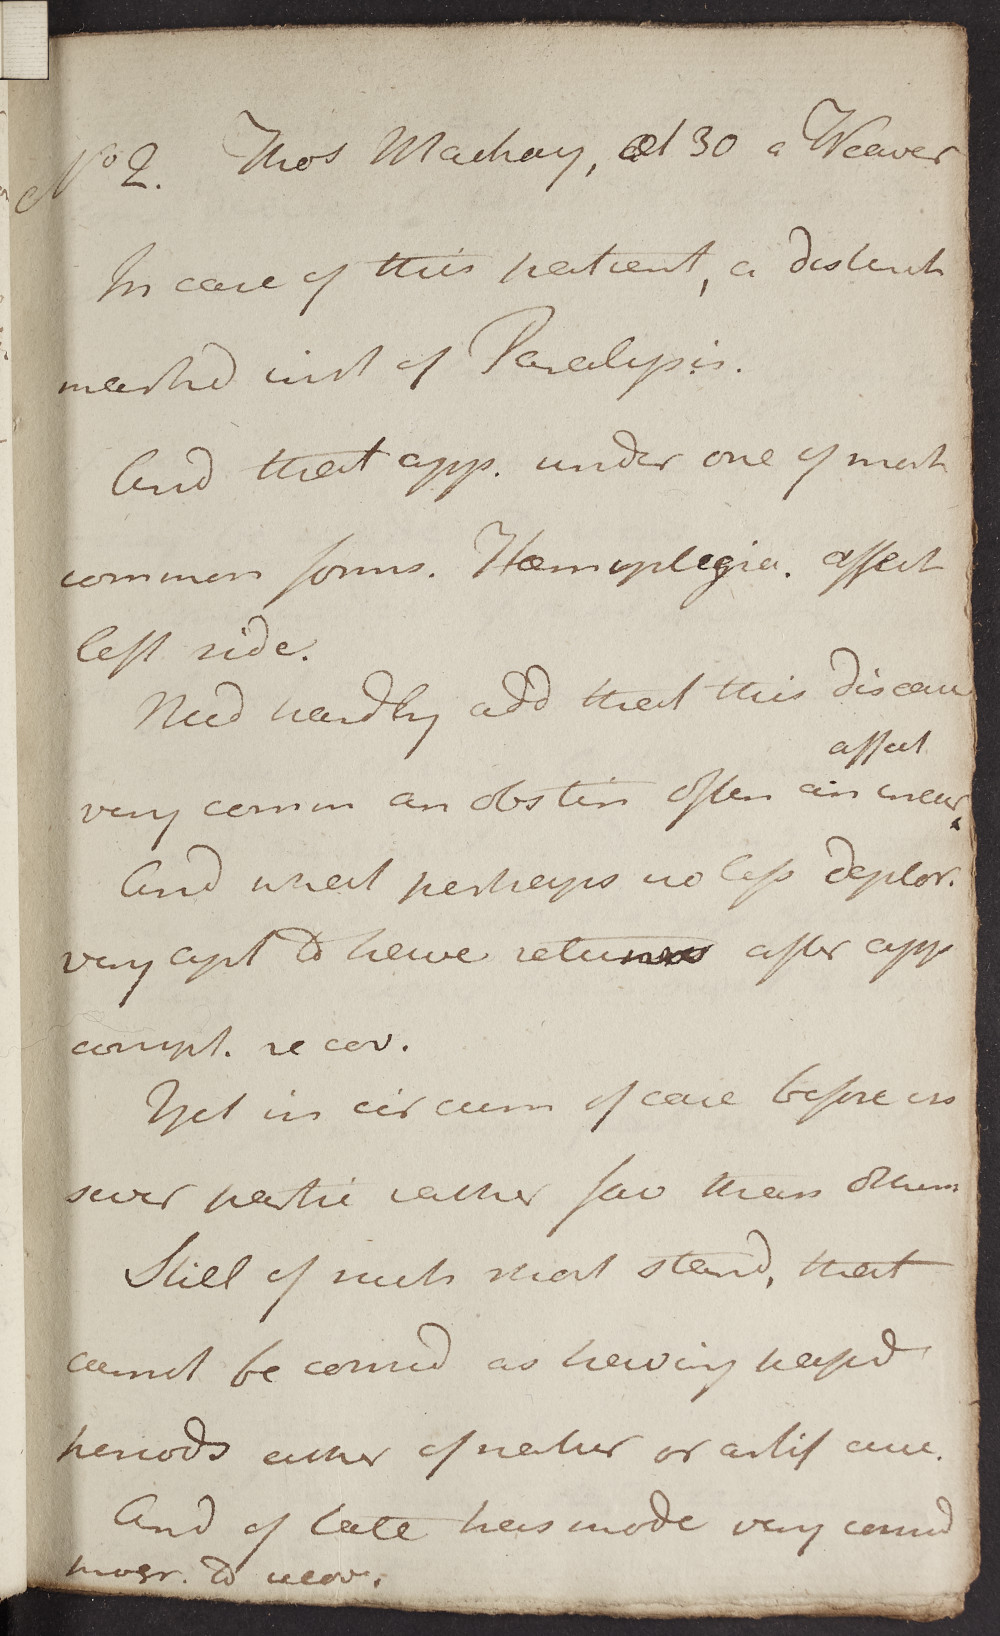 No 2. Thos Mackay, æt 30 a Weaver
In case of this patient, a distinct
markd inst of Paralysis.
And that app. under one of most
common forms. Hæmiplegia. affect
left side.
Need hardly add that this disease
affect
very comm an obstin often an incur
And what perhaps no less deplor.
very apt to have returns after app
compt. recov.
Yet in circum of case before us
sever partic rather fav than otherw
Still of such short stand, that
cannot be consid as having passd
periods either of natur or artif cure.
And of late has made very consid
progr. to recov.